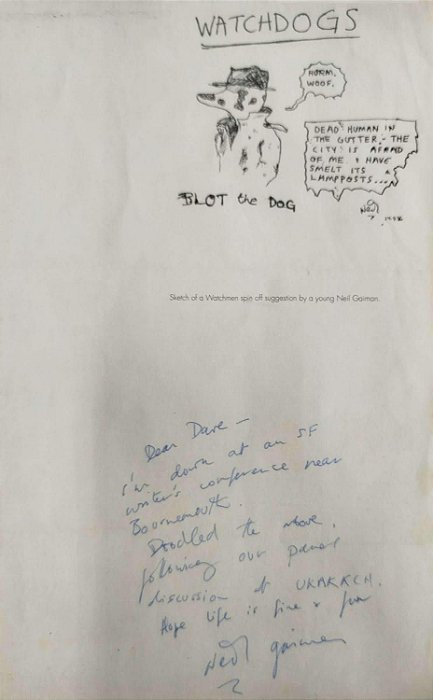 WATCHDOGS
HURM.
WOOF.
DEAD HUMAN IN
THE GUTTER - THE
CITY IS AFRAID
OF ME. I HAVE
SMELT ITS
LAMPPOSTS...
BLOT the DOG
Neil
Sketch of a Watchmen spin off suggestion by a young Neil Gaiman.
Dear Dave —
I'm down at an SF
writer's conference near
Bournemouth.
Doodled the above,
following our
discussion at UKAKKCH.
Hope life is fine & fun
Neil Gaiman